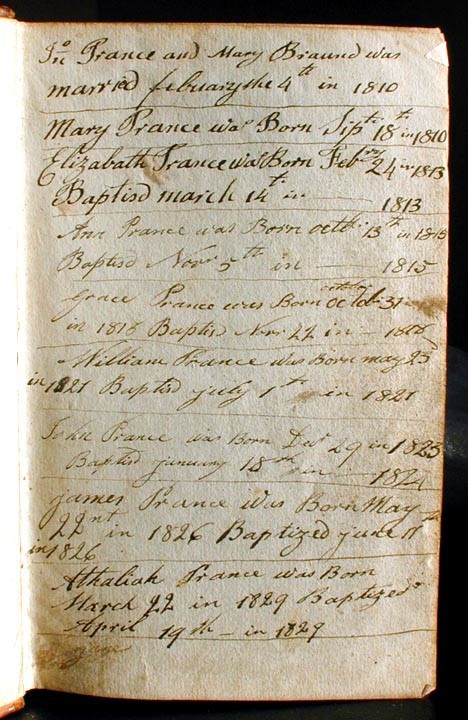 Jno Prance and Mary Braund was
married febuary the 4th in 1810
Mary Prance was Born Sipt 18th in 1810
Elizabath Prance was Born Febry 24 in 1813
Baptisd march 14th in — 1813
Ann Prance was Born octbr 13th in 1815
Baptisd Novr 5th in — 1815
Grace Prance was Born octbr 31
in 1818 Baptisd Novr 22 in — 1818
William Prance was Born may 23
in 1821 Baptisd july 1th in 1821
John Prance was Born Decr 29 in 1823
Baptisd january 18th in — 1824
james Prance was Born May
22nt in 1826 Baptized june 11
in 1826
Athaliah Prance was Born
March 22 in 1829 Baptized
April 19th — in 1829